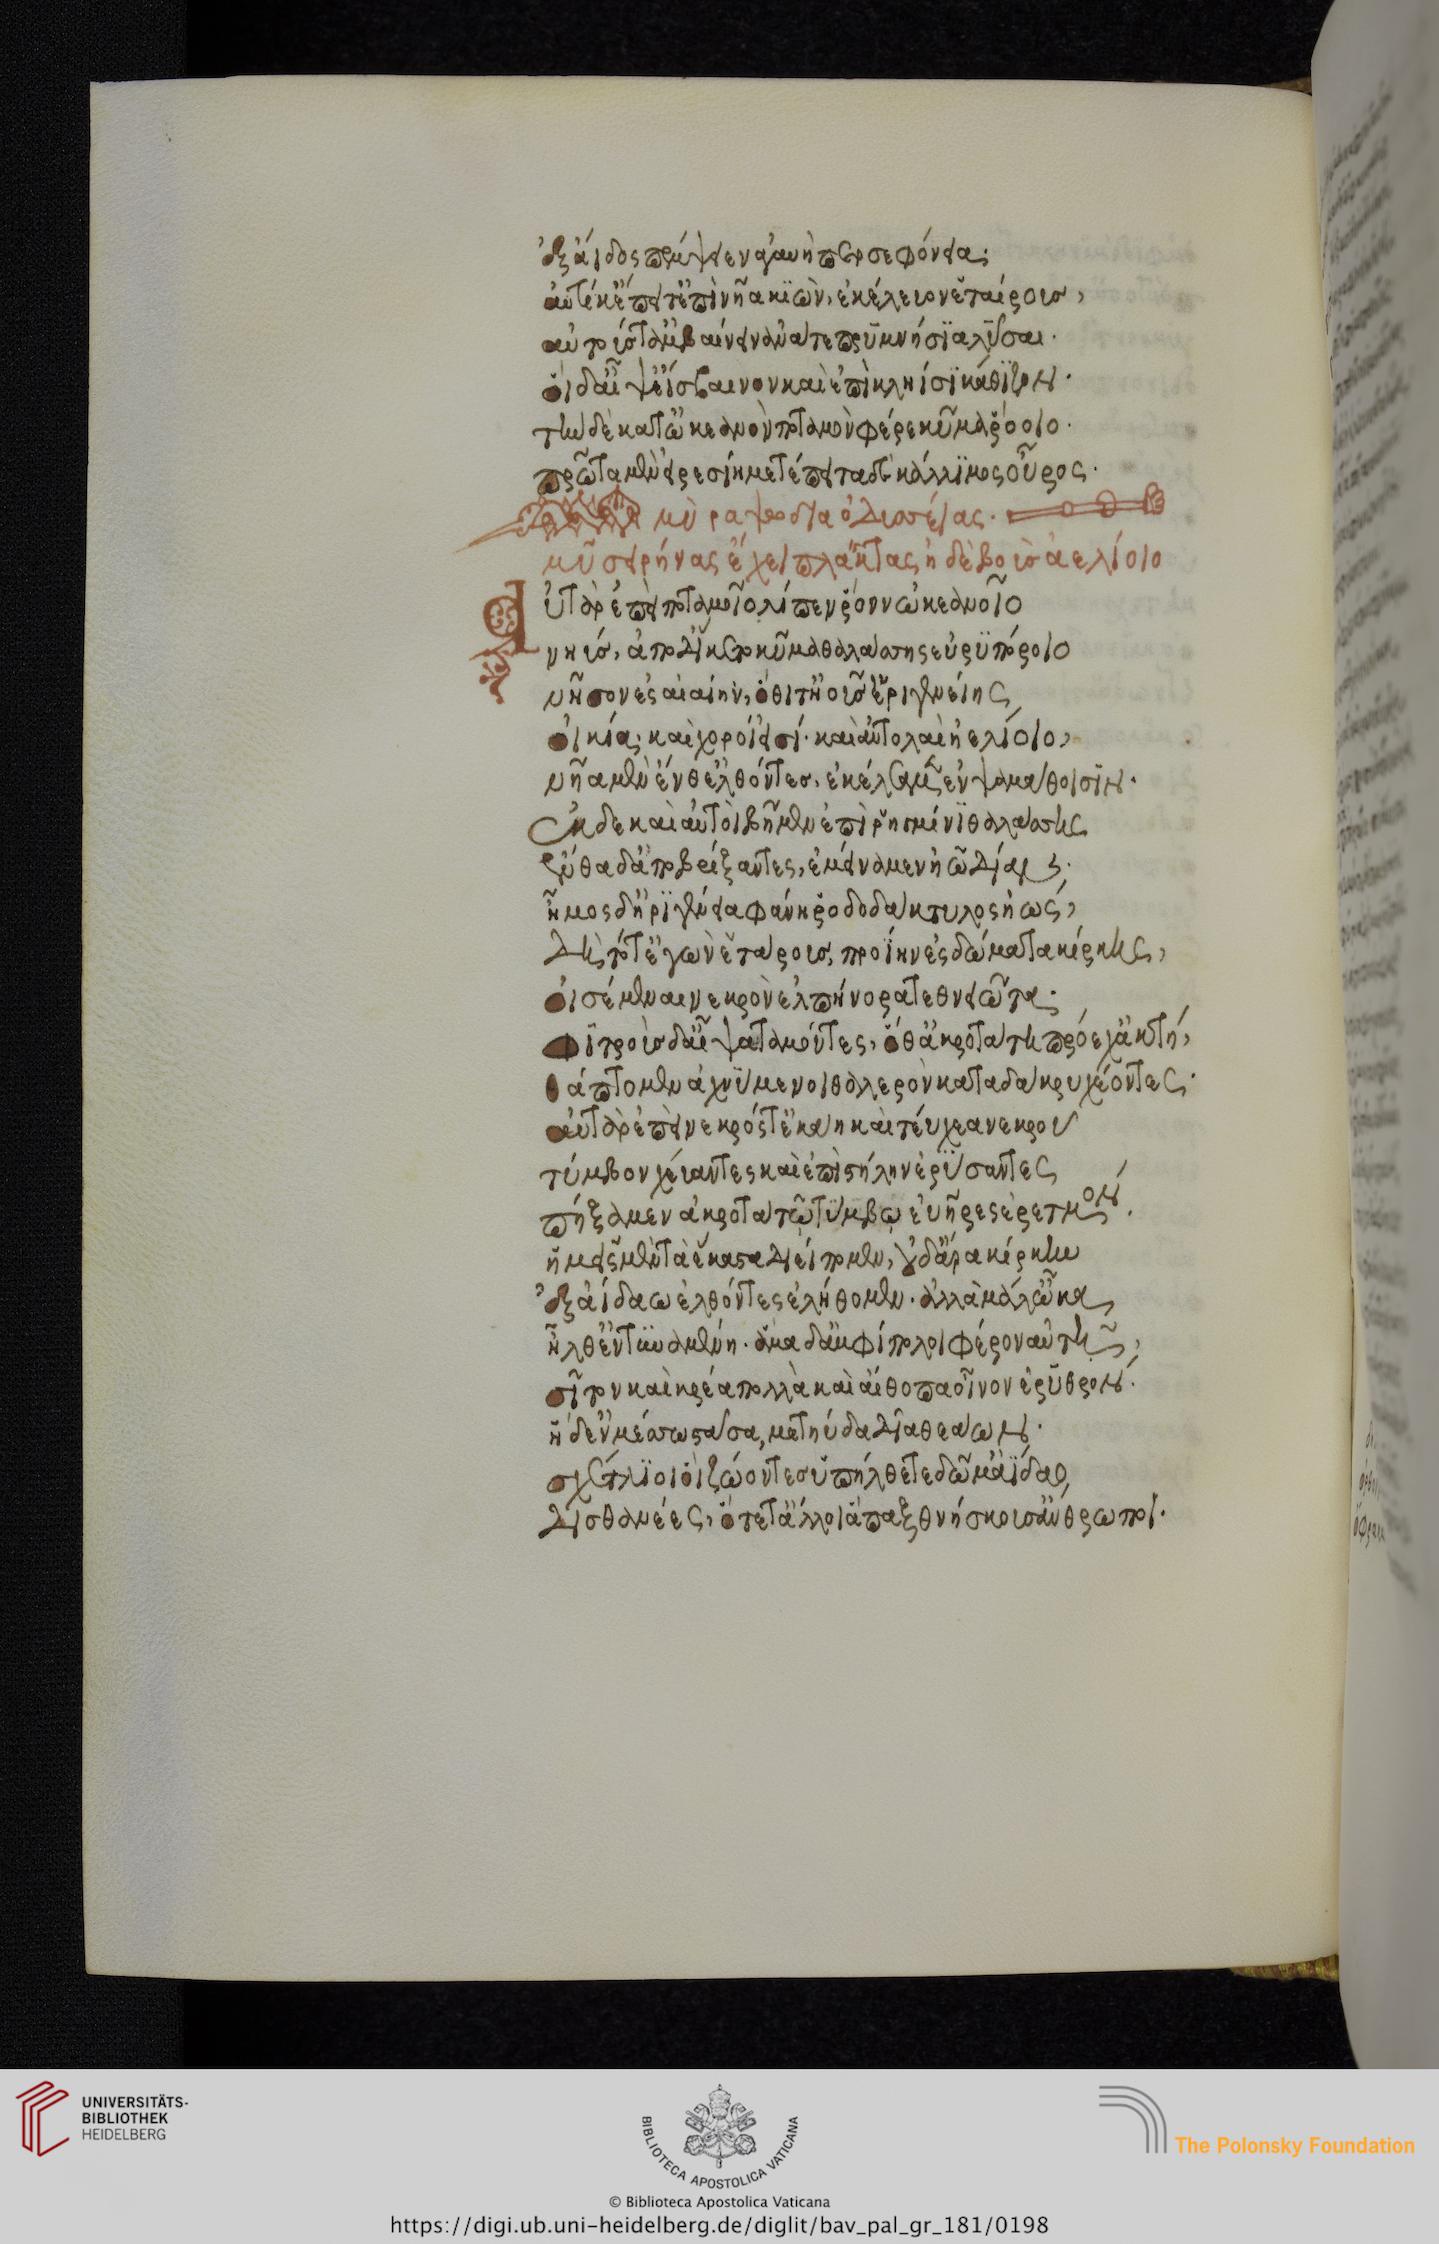 ἐξ ἄϊδος πέμψειεν ἀγαυὴ περσεφόνεια·
αὐτίκ' ἔπειτ' ἐπὶ νῆα κϊὼν, ἐκέλευον ἑταίροις,
αὐτούς τ' ἀμβαίνειν ἀνά τε πρϋμνήσϊα λῦσαι.
οἱ δ' αἶψ' εἴσβαινον καὶ ἐπὶ κληίσϊ κάθϊζον.
τὴν δὲ κατ' ὠκεανὸν ποταμὸν φέρε κῦμα ῥόοιο.
πρῶτα μὲν εἰρεσίη μετέπειτα δὲ κάλλϊμος οὖρος.
μῦ ῥαψωδία ὀδυσσείας.
μῦ σειρῆνας ἔχει πλαγκτὰς ἠδὲ βοῦς ἀελίοιο
Αὐτὰρ ἐπεὶ ποταμοῖο λίπεν ῥόον ὠκεανοῖο
νηῦς, ἀπὸ δ' ἵκετο κῦμα θαλάσσης εὐρϋπόροιο
νῆσον ἐς αἰαίην, ὅθι τ' ἠοῦς ἠριγενείης
οἰκία· καὶ χοροί εἰσί. καὶ ἀντολαὶ ἠελίοιο,
νῆα μὲν ἔνθ' ἐλθόντες, ἐκέλσαμεν ἐν ψαμάθοισϊν.
ἐκ δὲ καὶ αὐτοὶ βῆμεν ἐπὶ ῥηγμῖνϊ θαλάσσης
ἔνθα δ' ἀποβρίξαντες, ἐμείναμεν ἠῶ δῖαν·
ἦμος δ' ἠρϊγένεια φάνη ῥοδοδάκτυλος ἠώς,
δὴ τότ' ἐγὼν ἑτάρους, προΐην ἐς δώματα κίρκης,
οἰσέμεναι νεκρὸν ἐλπήνορα τεθνειῶτα·
φϊτροὺς δ' αἶψα ταμόντες, ὅθ' ἀκροτάτη πρόεχ' ἀκτή,
θάπτομεν ἀχνύμενοι θαλερὸν κατὰ δάκρυ χέοντες·
αὐτὰρ ἐπεὶ νεκρός τ' ἐκάη καὶ τεύχεα νεκροῦ
τύμβον χεύαντες καὶ ἐπὶ στήλην ἐρύσαντες
πήξαμεν ἀκροτάτω τύμβω εὐῆρες ἐρετμόν.
ἡμεῖς μὲν τὰ ἕκαστα διείπομεν, οὐδ' ἄρα κίρκην
ἐξ ἀΐδαω ἐλθόντες ἐλήθομεν. ἀλλὰ μάλ' ὦκα
ἦλθ' ἐντϋναμένη. ἅμα δ' ἀμφίπολοι φέρον αὐτῆ,
σῖτον καὶ κρέα πολλὰ καὶ αἴθοπα οἶνον ἐρῦθρον.
ἡ δ' ἐν μέσω στᾶσα, μετηύδα δῖα θεάων.
σχέτλϊοι οἳ ζώοντες ὑπήλθετε δῶμ' ἀΐδαο
δισθανέες, ὅτε τ' ἄλλοι ἅπαξ θνήσκουσ' ἄνθρωποι.
UNIVERSITÄTS-
BIBLIOTHEK
HEIDELBERG
BIBLIOTECA APOSTOLICA VATICANA
The Polonsky Foundation
© Biblioteca Apostolica Vaticana
https://digi.ub.uni-heidelberg.de/diglit/bav_pal_gr_181/0198